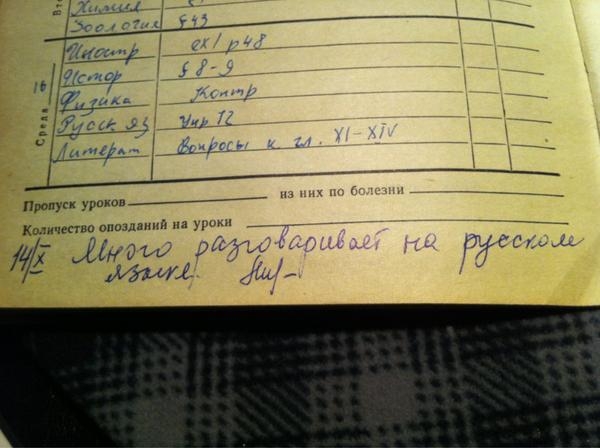 Химия
Зоология § 43
Среда 16
Иностр ex 1 p 48
Истор § 8-9
Физика Контр
Русск яз Упр 12
Литерат Вопросы к гл. XI-XIV
Пропуск уроков из них по болезни
Количество опозданий на уроки
14/X Много разговаривает на русском
языке.